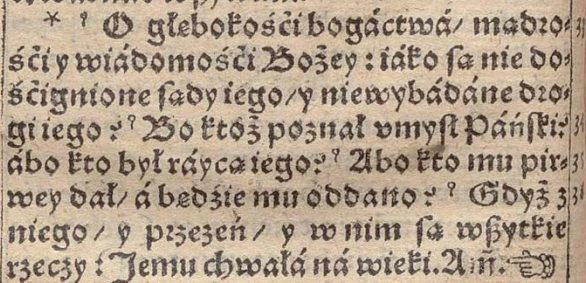 * ? O głebokośći bogáctwá/ mądro-
śći y wiádomośći Bożey : iáko są nie do-
śćignione sądy iego/ y niewybádáne dro-
gi iego ? ? Bo ktoż poznał vmysł Páński?
ábo kto był ráycą iego? ? Abo kto mu pir-
wey dał/ á będźie mu oddano ? ? Gdyż z
niego/ y przezeń/ y w nim są wszytkie
rzeczy : Jemu chwałá ná wieki. Am̄.